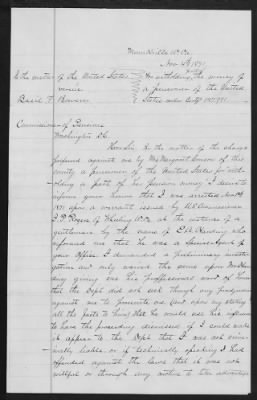 Moundsville W. Va.
Nov 1891
In the matter of the United States
versus
Basil T. Bowers
For withholding the money of
a pensioner of the United
States under Certf
Commissioner of Pensions
Washington D.C.
Hon Sir In the matter of the charge
preferred against one by Ms Margaret of this
county a pensioner of the United States for with-
holding a part of her pension money I desire to
inform your honor that I was arrested
1891 upon a warrant issued by U.S. Commissioner
of Wheeling W. Va. at the instance of a
gentleman by the name of who
informed me that he was a Special Agent of
your Office. I demanded a preliminary investi-
gation and only waived the same upon
giving me his professional word of honor
that the Dept did not seek through any prejudice
against me to prosecute me and upon my stating
all the facts to him that he would use his influence
to have the proceeding dismissed if I could make
it appear to the Dept that I was not crimi-
nally liable or if technically speaking I had
offended against the laws that it was not
willful or through any motive to take advantage